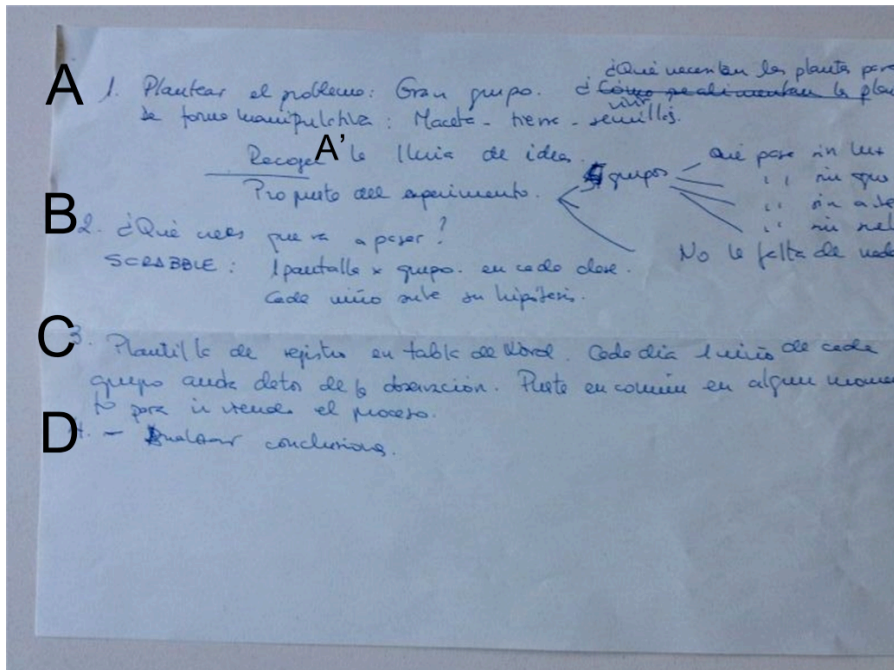 ¿Qué necesitan las plantas para
A 1. Plantear el problema: Gran grupo. ¿Cómo se alimentan las plan
vivir
de forma manipulativa: Maceta - tierra - semillas.
Recoger A' la lluvia de ideas.
Propuesta del experimento.
5 grupos
Qué pasa sin luz
" sin
" sin
" sin
No le falta de nada
B 2. ¿Qué crees que va a pasar?
SCRABBLE: 1 pantalla x grupo. en cada clase.
Cada niño sube su hipótesis.
C 3. Plantilla de registro en tabla de Word. Cada dia 1 niño de cada
grupo anota datos de la observación. Puesta en común en algun momen
to para ir viendo el proceso.
D 4. - Analizar conclusiones.